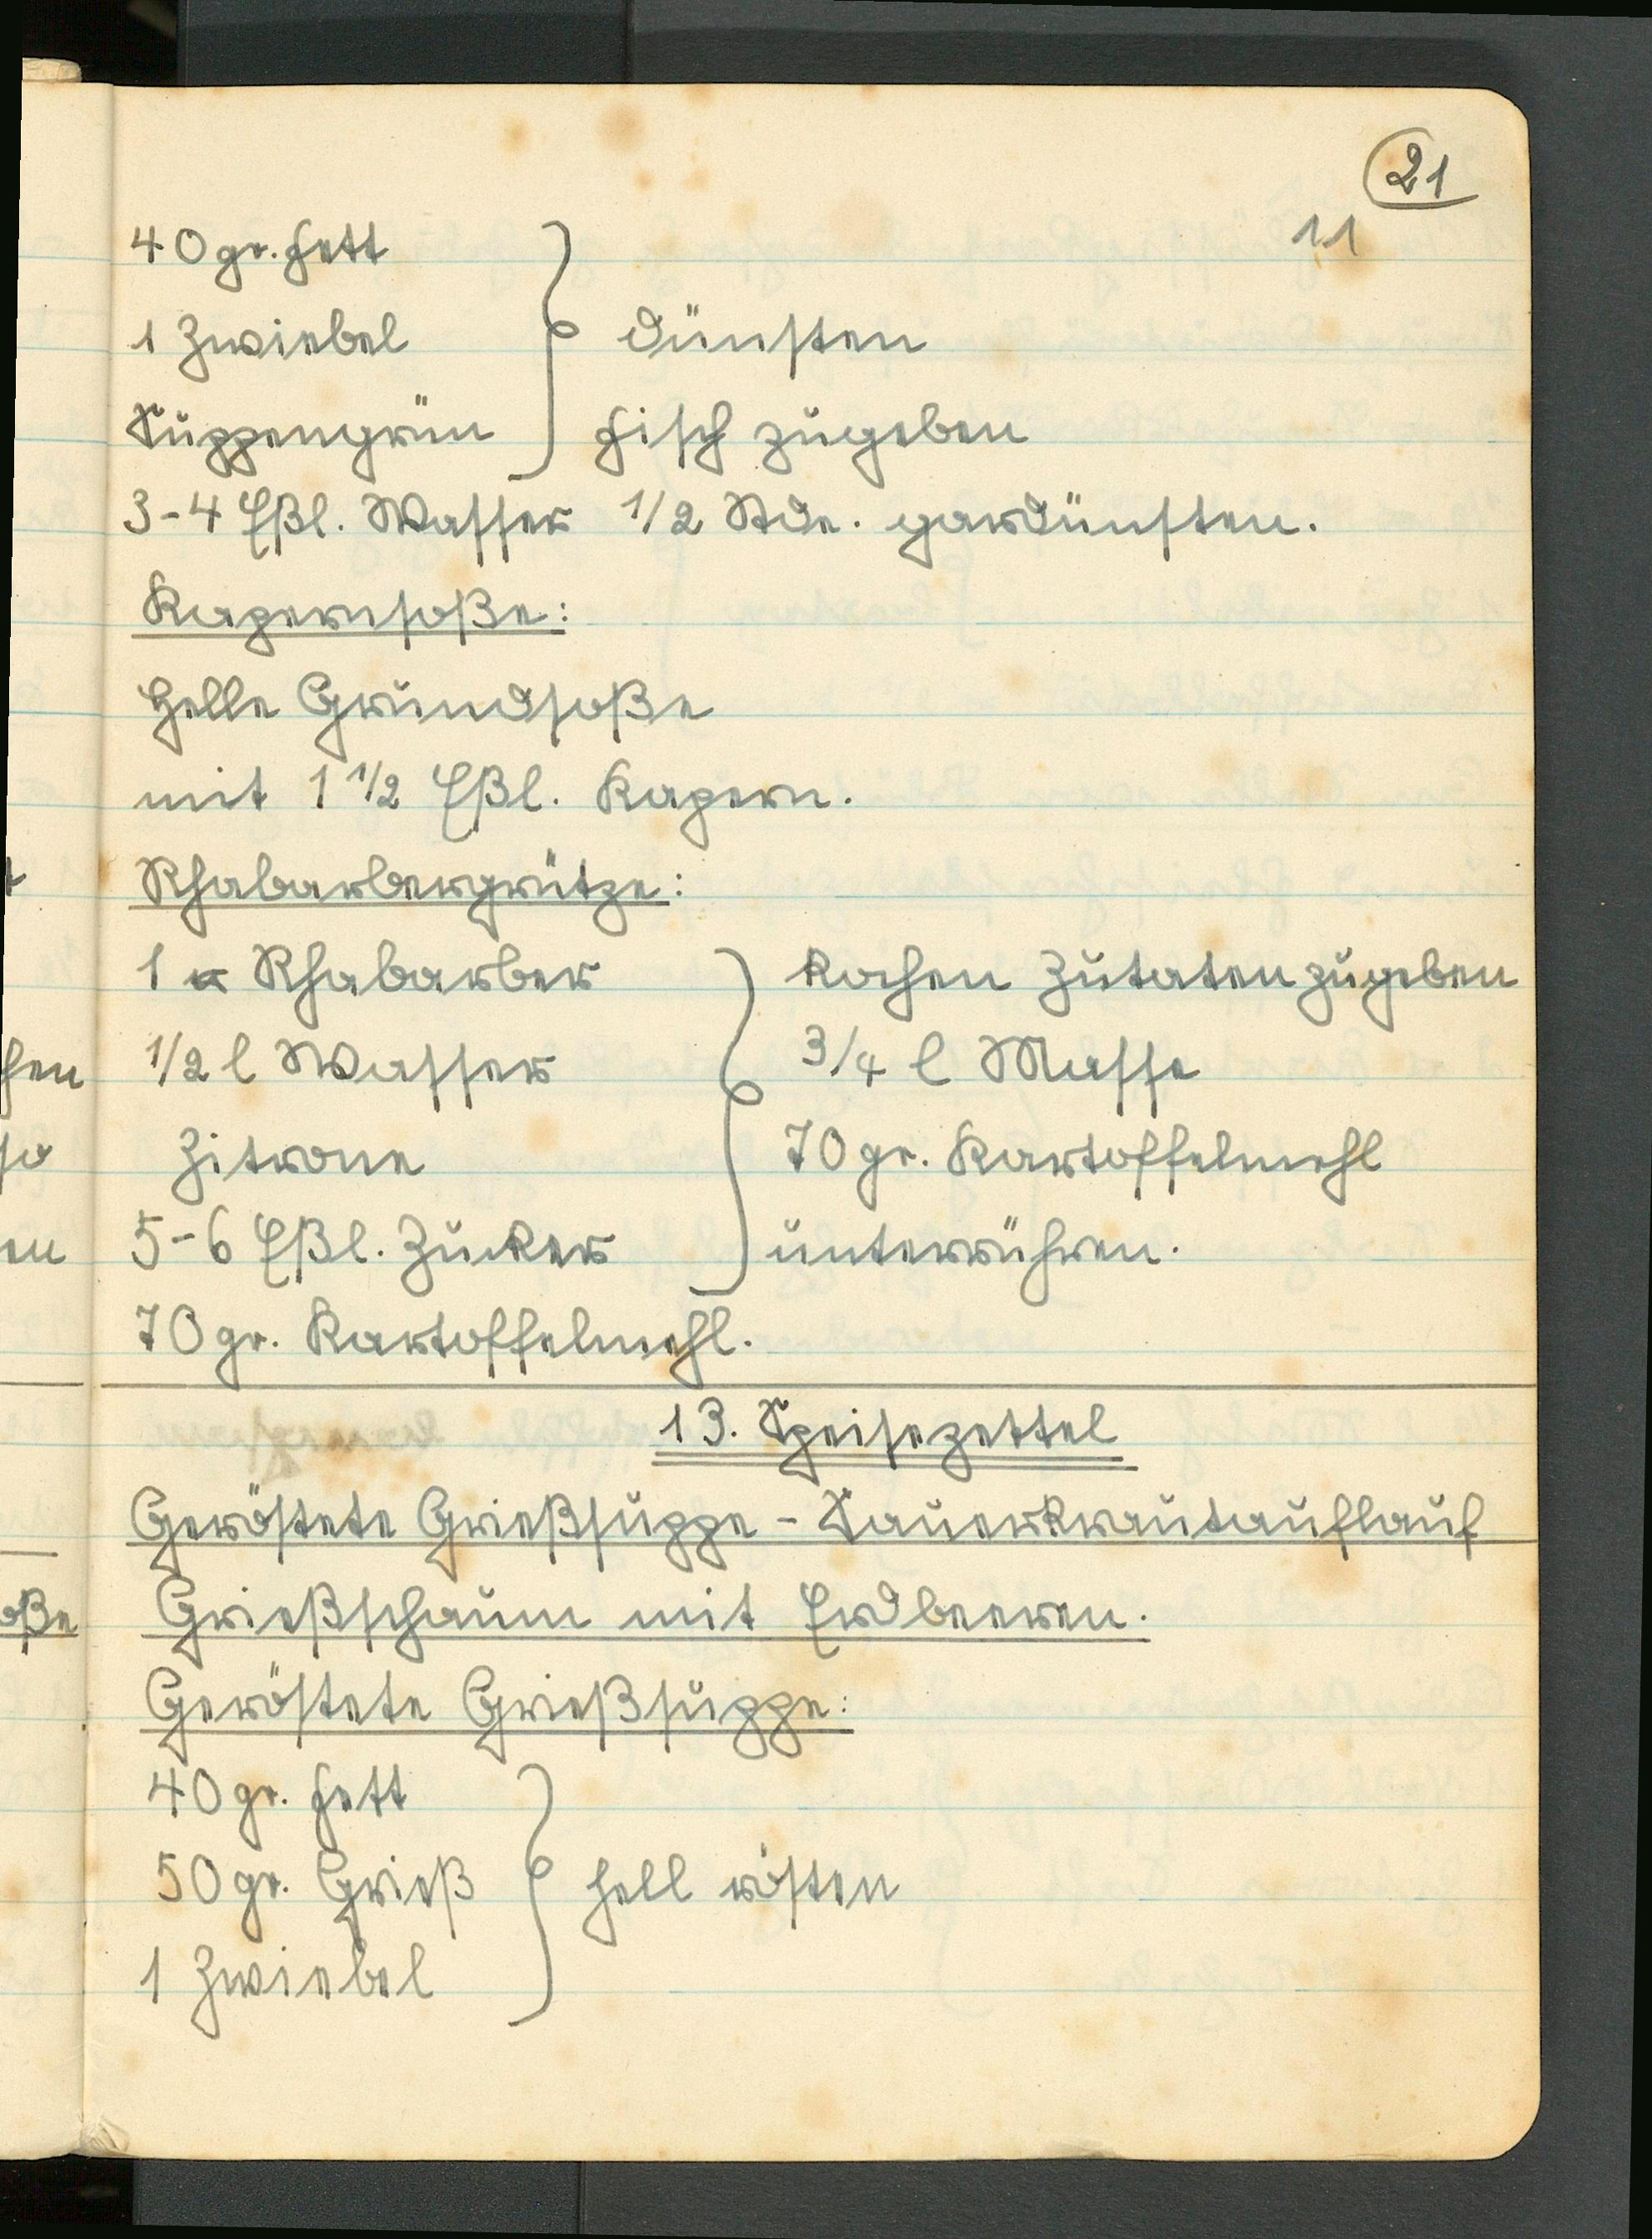 21
11
40 gr. Fett
1 Zwiebel } dünsten
Suppengrün } Fisch zugeben
3-4 Eßl. Wasser 1/2 Stde. gardünsten.
Kapernsoße:
Helle Grundsoße
mit 1 1/2 Eßl. Kapern.
Rhabarbergrütze:
1 Rhabarber } kochen Zutaten zugeben
1/2 l Wasser } 3/4 l Masse
Zitrone } 70 gr. Kartoffelmehl
5-6 Eßl. Zucker } unterrühren.
70 gr. Kartoffelmehl.
13. Speisezettel
Geröstete Grießsuppe - Sauerkrautauflauf
Grießschaum mit Erdbeeren.
Geröstete Grießsuppe:
40 gr. Fett
50 gr. Grieß } hell rösten
1 Zwiebel